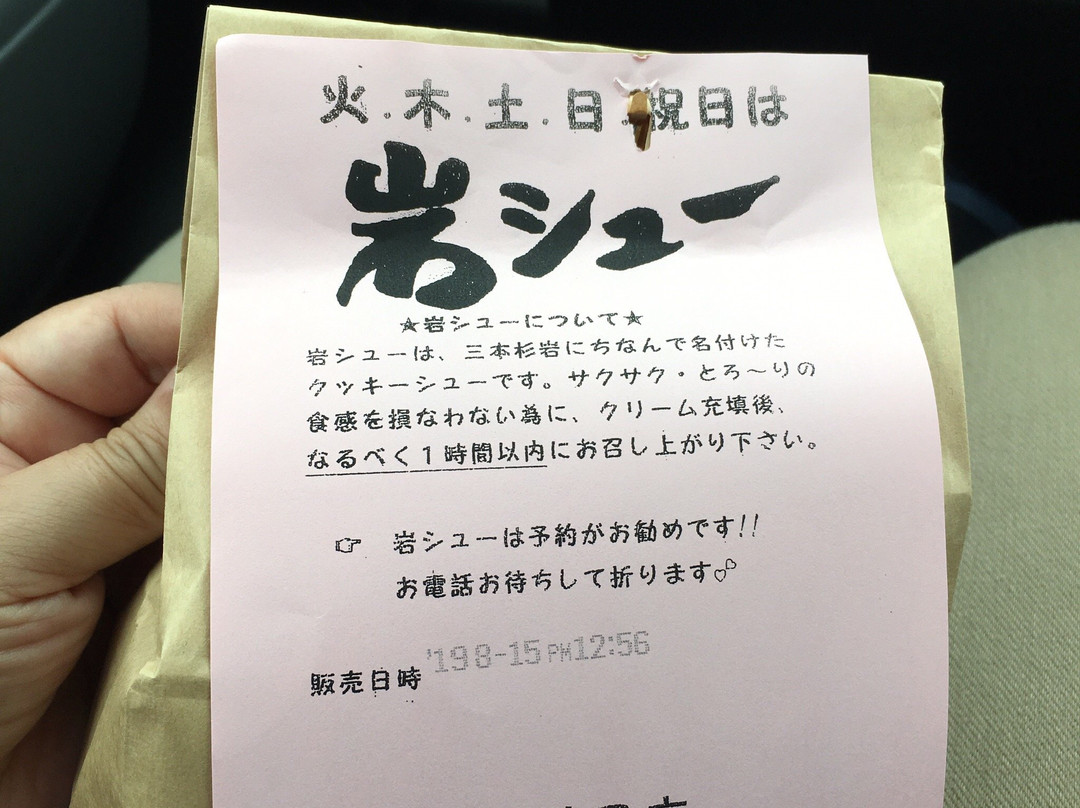 火.木.土.日.祝日は
岩シュー
★岩シューについて★
岩シューは、三本杉岩にちなんで名付けた
クッキーシューです。サクサク・とろ～りの
食感を損なわない為に、クリーム充填後、
なるべく1時間以内にお召し上がり下さい。
☞ 岩シューは予約がお勧めです!!
お電話お待ちして折ります♡
'19 8-15 PM12:56
販売日時